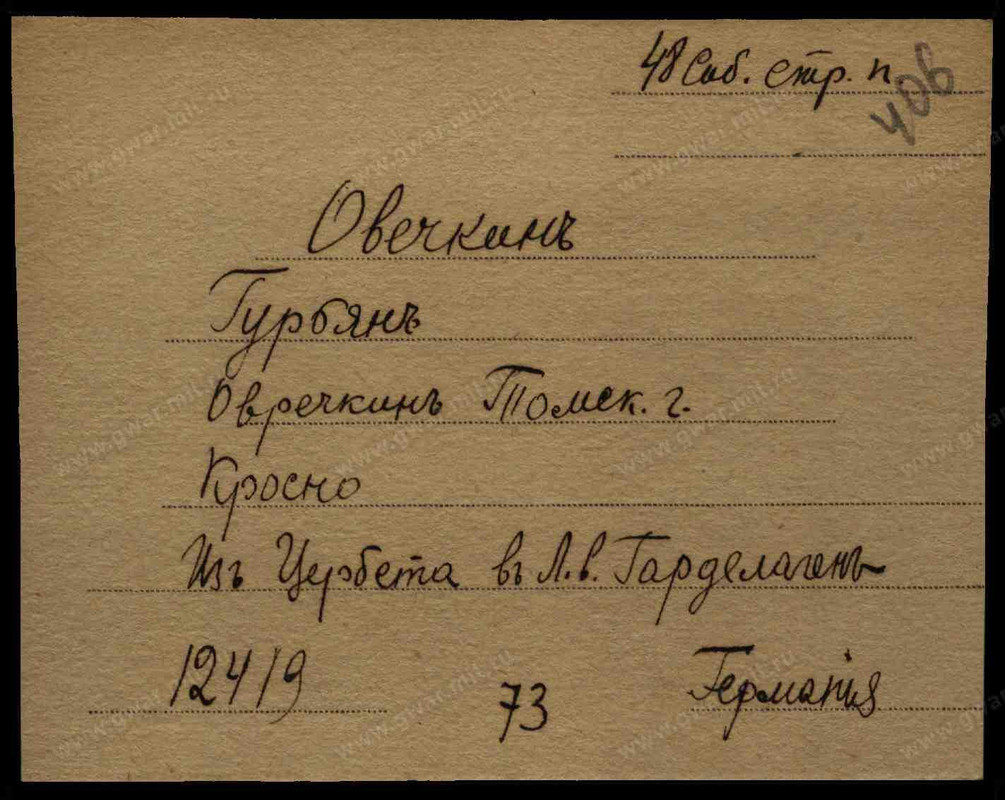 48 Сиб. стр. п.
406
Овечкинъ
Гурбянъ
Овречкинъ Томск. г.
Кросно
Изъ Цербета въ Л.в. Гарделагенъ
12419
73
Германія